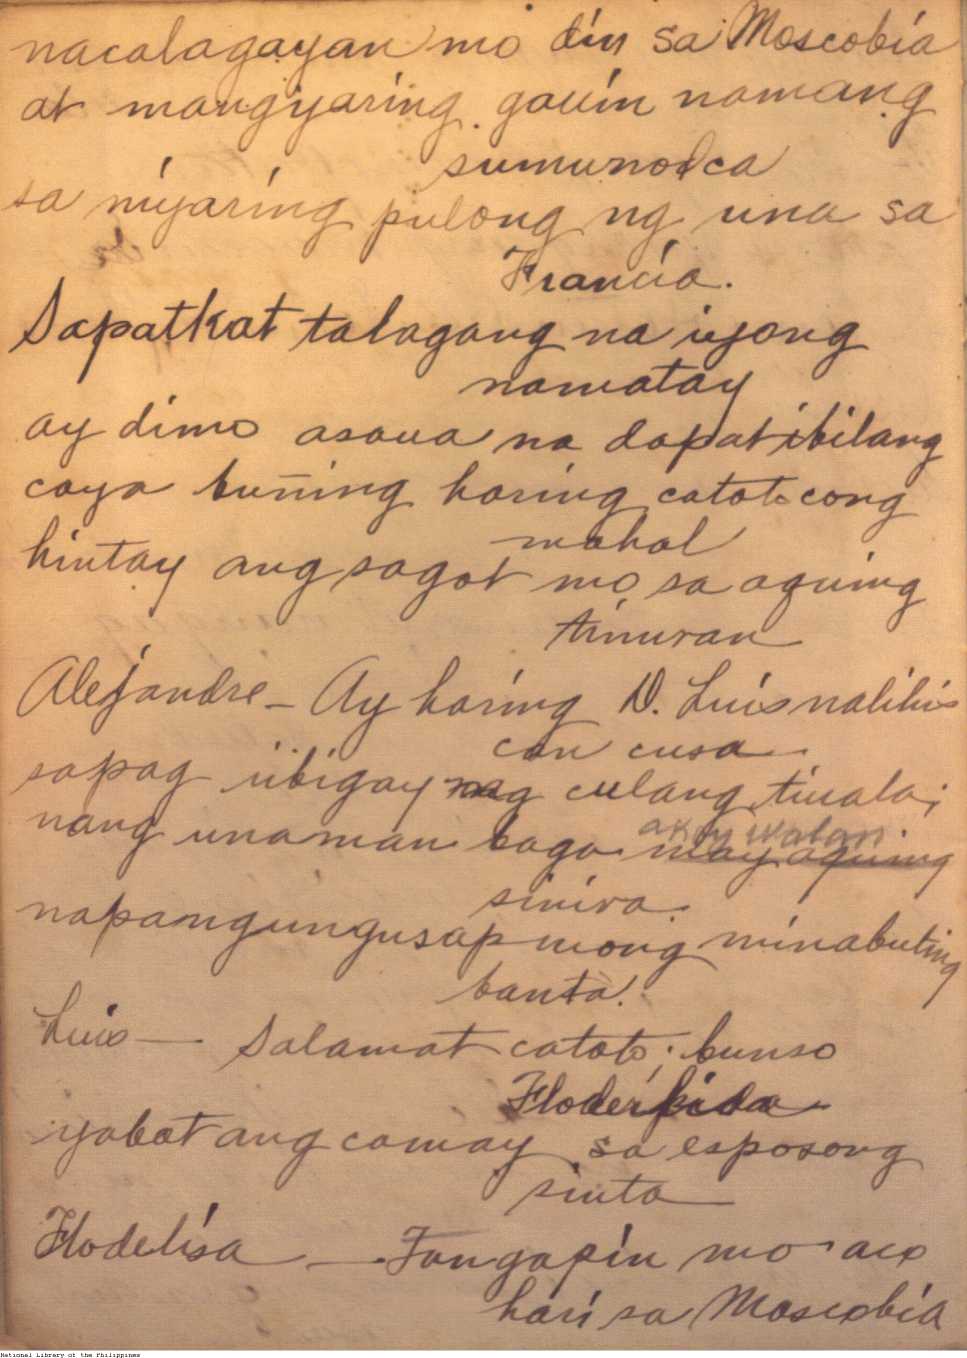 nacalagayan mo din sa Moscobia
at mangyaring gauin namang
sumunod ca
sa niyaring pulong ng una sa
Francia.
Sapatkat talagang na iyong
namatay
ay dimo asaua na dapat ibilang
caya buñing haring catoto cong
mahal
hintay ang sagot mo sa aquing
tinuran
Alejandre - Ay haring D. Luis nalihis
can cusa
sapag iibigay nag culang tiuala;
nang unaman baga may aquing
akoy walan
sinira.
napangungusap mong minabuting
banta.
Luis - Salamat catoto; bunso
Floderpida
yabot ang camay sa esposong
sinta
Flodelisa - Tangapin mo aco
hari sa Moscobia
National Library of the Philippines